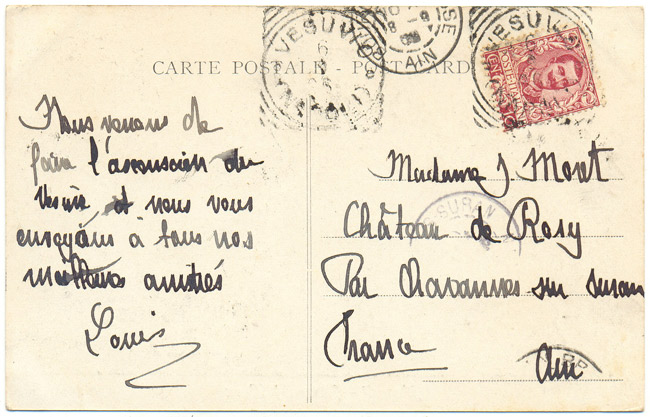 CARTE POSTALE - POST CARD
VESUVIO
VESUVIO
AIN
POSTE ITALIANE
Nous venons de
faire l'ascension du
Vésuve et nous vous
envoyons à tous nos
meilleures amitiés
Louis
Madame J. Moret
Château de Rosy
Par Chavannes sur Suran
France
Ain
SURAN